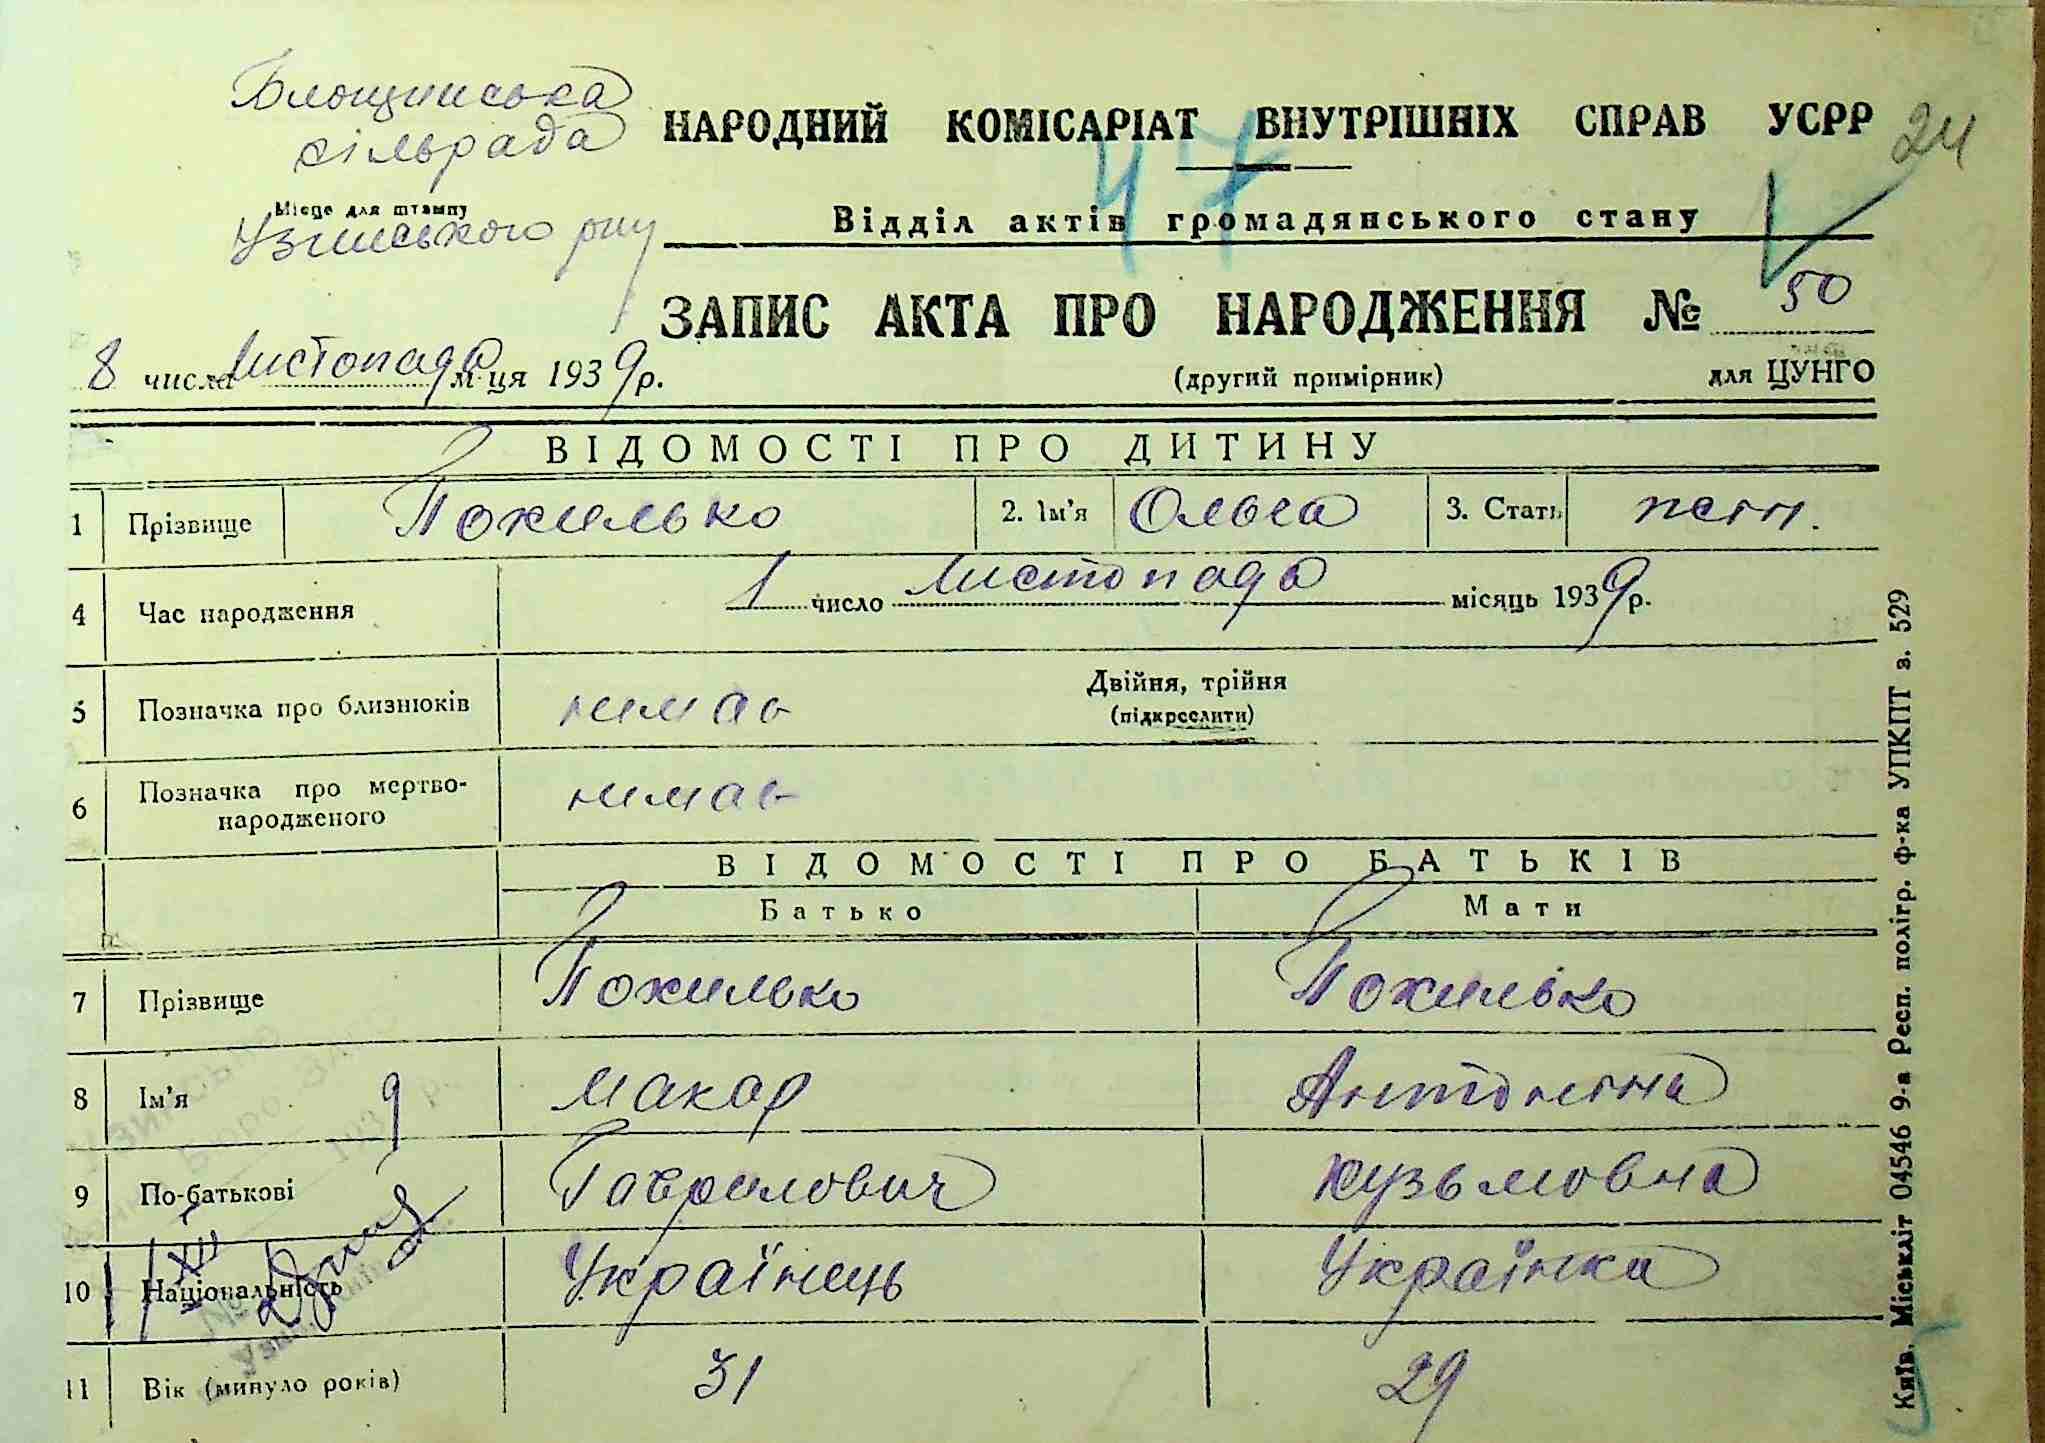 Блощинська
сільрада
НАРОДНИЙ КОМІСАРІАТ ВНУТРІШНІХ СПРАВ УСРР
24
47
Місце для штампу
Узинського р-ну
Відділ актів громадянського стану
ЗАПИС АКТА ПРО НАРОДЖЕННЯ № 50
8 числа Листопада м-ця 1939 р.
(другий примірник)
для ЦУНГО
ВІДОМОСТІ ПРО ДИТИНУ
1 Прізвище Похилько 2. Ім'я Ольга 3. Стать жін.
4 Час народження 1 число Листопада місяць 1939 р.
5 Позначка про близнюків нимає Двійня, трійня
(підкреслити)
6 Позначка про мертво-
народженого нимає
ВІДОМОСТІ ПРО БАТЬКІВ
Батько Мати
7 Прізвище Похилько Похилько
8 Ім'я Макар Антоніна
9 По-батькові Гаврилович Кузьмовна
10 Національність Українець Українка
11 Вік (минуло років) 31 29
Київ. Міськліт 04546 9-а Респ. полігр. ф-ка УПКПТ з. 529